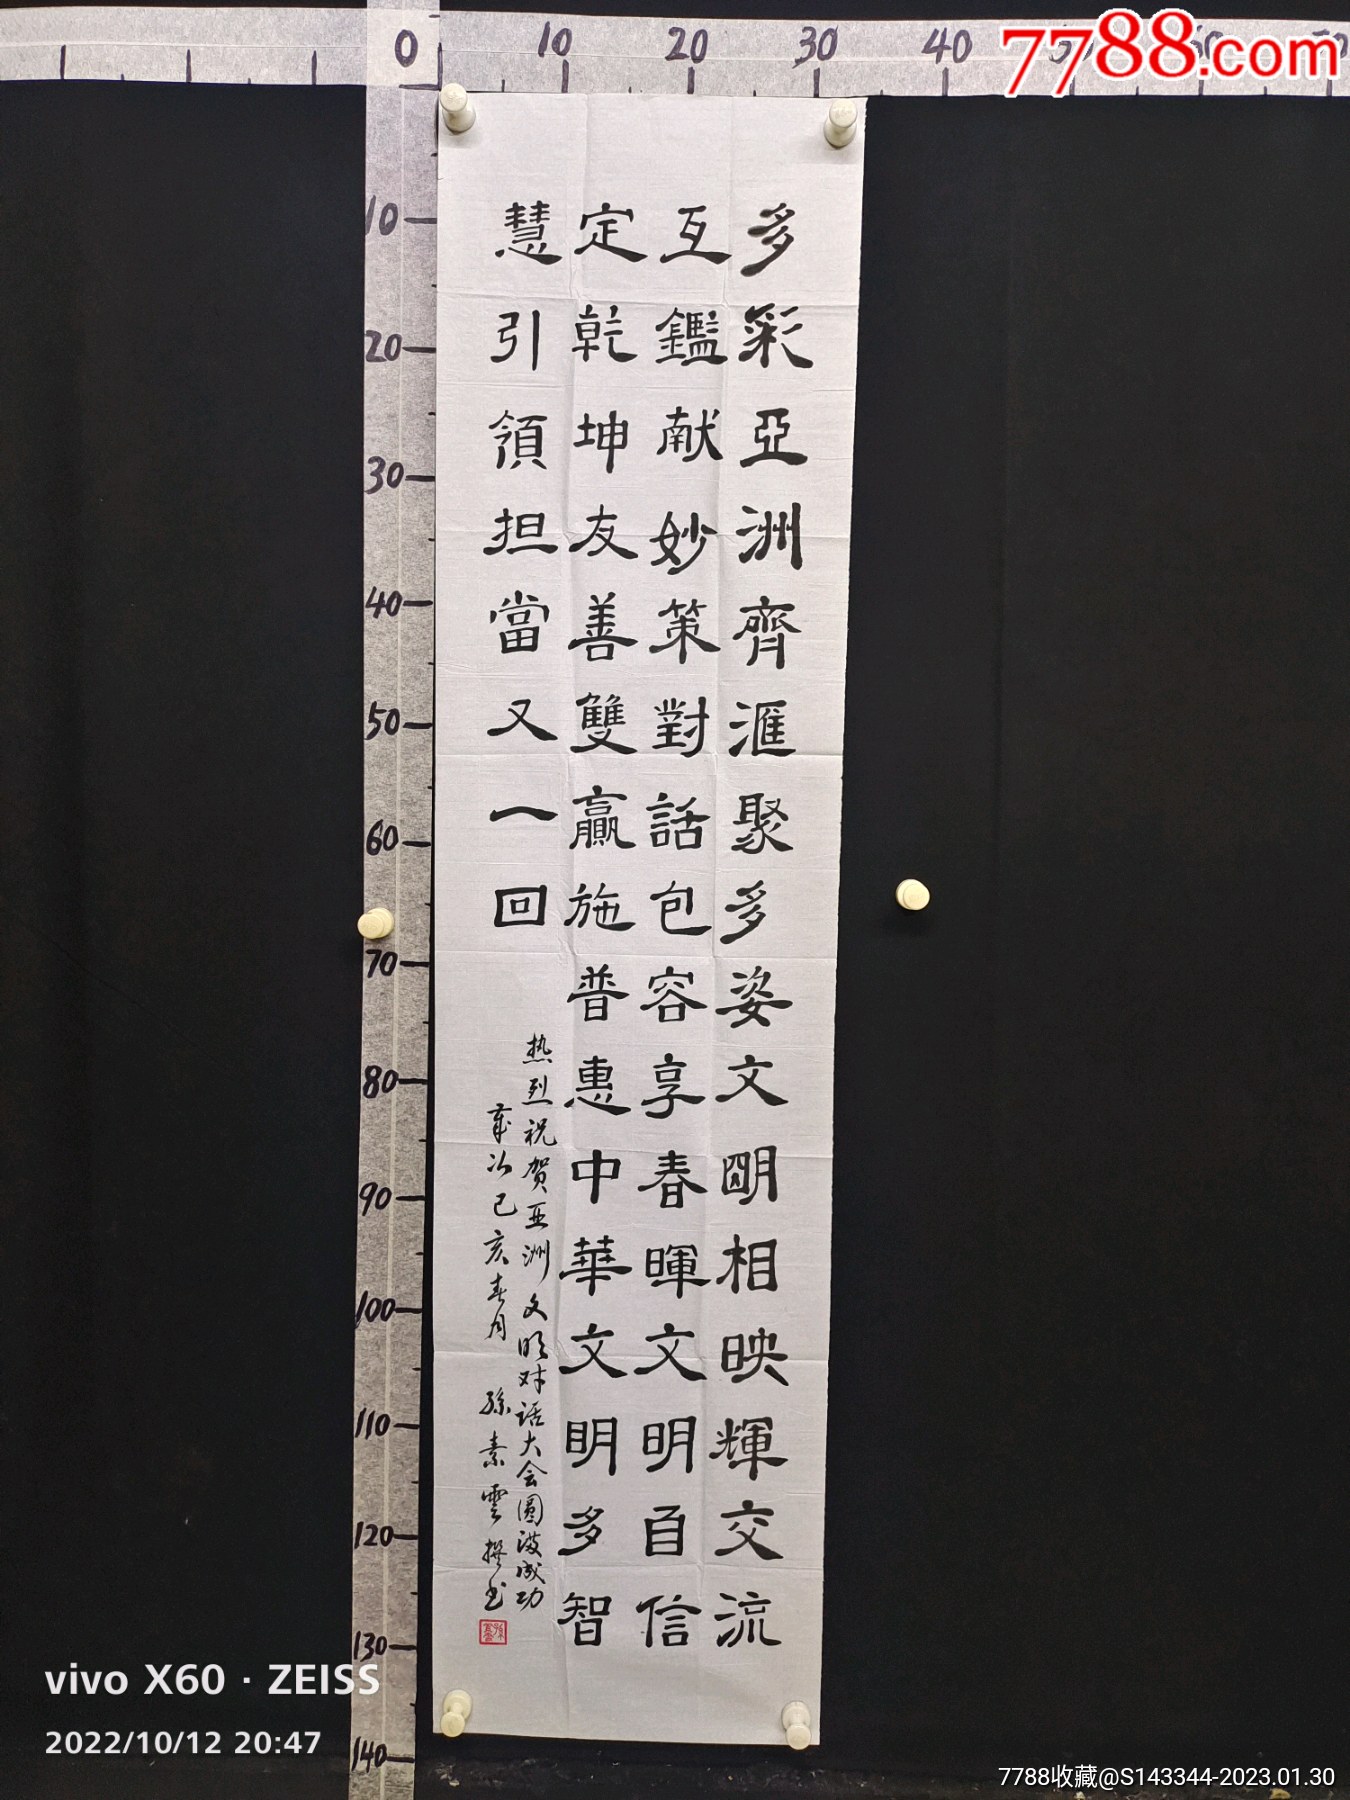 0 10 20 30 40 50 60 70
7788.com
10
20
30
40
50
60
70
80
90
100
110
120
130
140
多彩亞洲齊滙聚多姿文明相映輝交流
互鑑献妙策對話包容享春暉文明自信
定乾坤友善雙贏施普惠中華文明多智
慧引領担當又一回
热烈祝贺亚洲文明对话大会圆满成功
歲次己亥春月 孫素雲撰书
vivo X60 · ZEISS
2022/10/12 20:47
7788收藏@S143344-2023.01.30